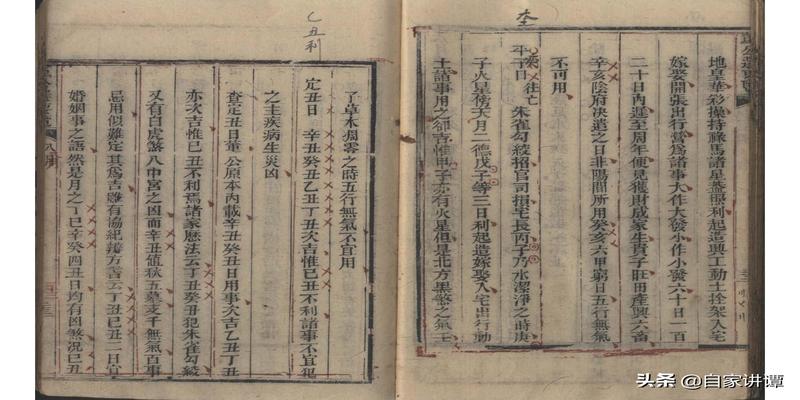 地皇華彩操持祿馬諸星蓋照利起造興工動土拴架入宅
嫁娶開張出行營爲諸事大作大發小作小發六十日一百
二十日內遲至周年便見獲財成家生貴子旺田產興六畜
辛亥陰府決遣之日非陽間所用癸亥六甲窮日五行無氣
不可用
平子日 往亡 朱雀勾絞招官司損宅長丙子乃水潔淨之時庚
子火星傍天月二德戊子等三日利起造嫁娶入宅出行動
土諸事用之卻吉惟甲子亦有火星但是北方黑煞之氣
乙丑利
了草木凋零之時五行無氣不宜用
定丑日 辛丑癸丑乙丑丁丑次吉惟己丑不利諸事不宜犯
之主疾病生災凶
查定丑日董公原本內載辛丑癸丑日用事次吉乙丑丁丑
亦次吉惟己丑不利焉諸家歷法云丁丑癸丑犯朱雀勾絞
又有白虎煞八中宮之凶而辛丑值秋五墓支干無氣百事
忌用似難定其爲吉雖有協紀辨方書云丁丑己丑二日宜
婚姻事之語然是月之丁巳辛癸四丑日均有凶煞況己丑
頭条 @自家讲谭